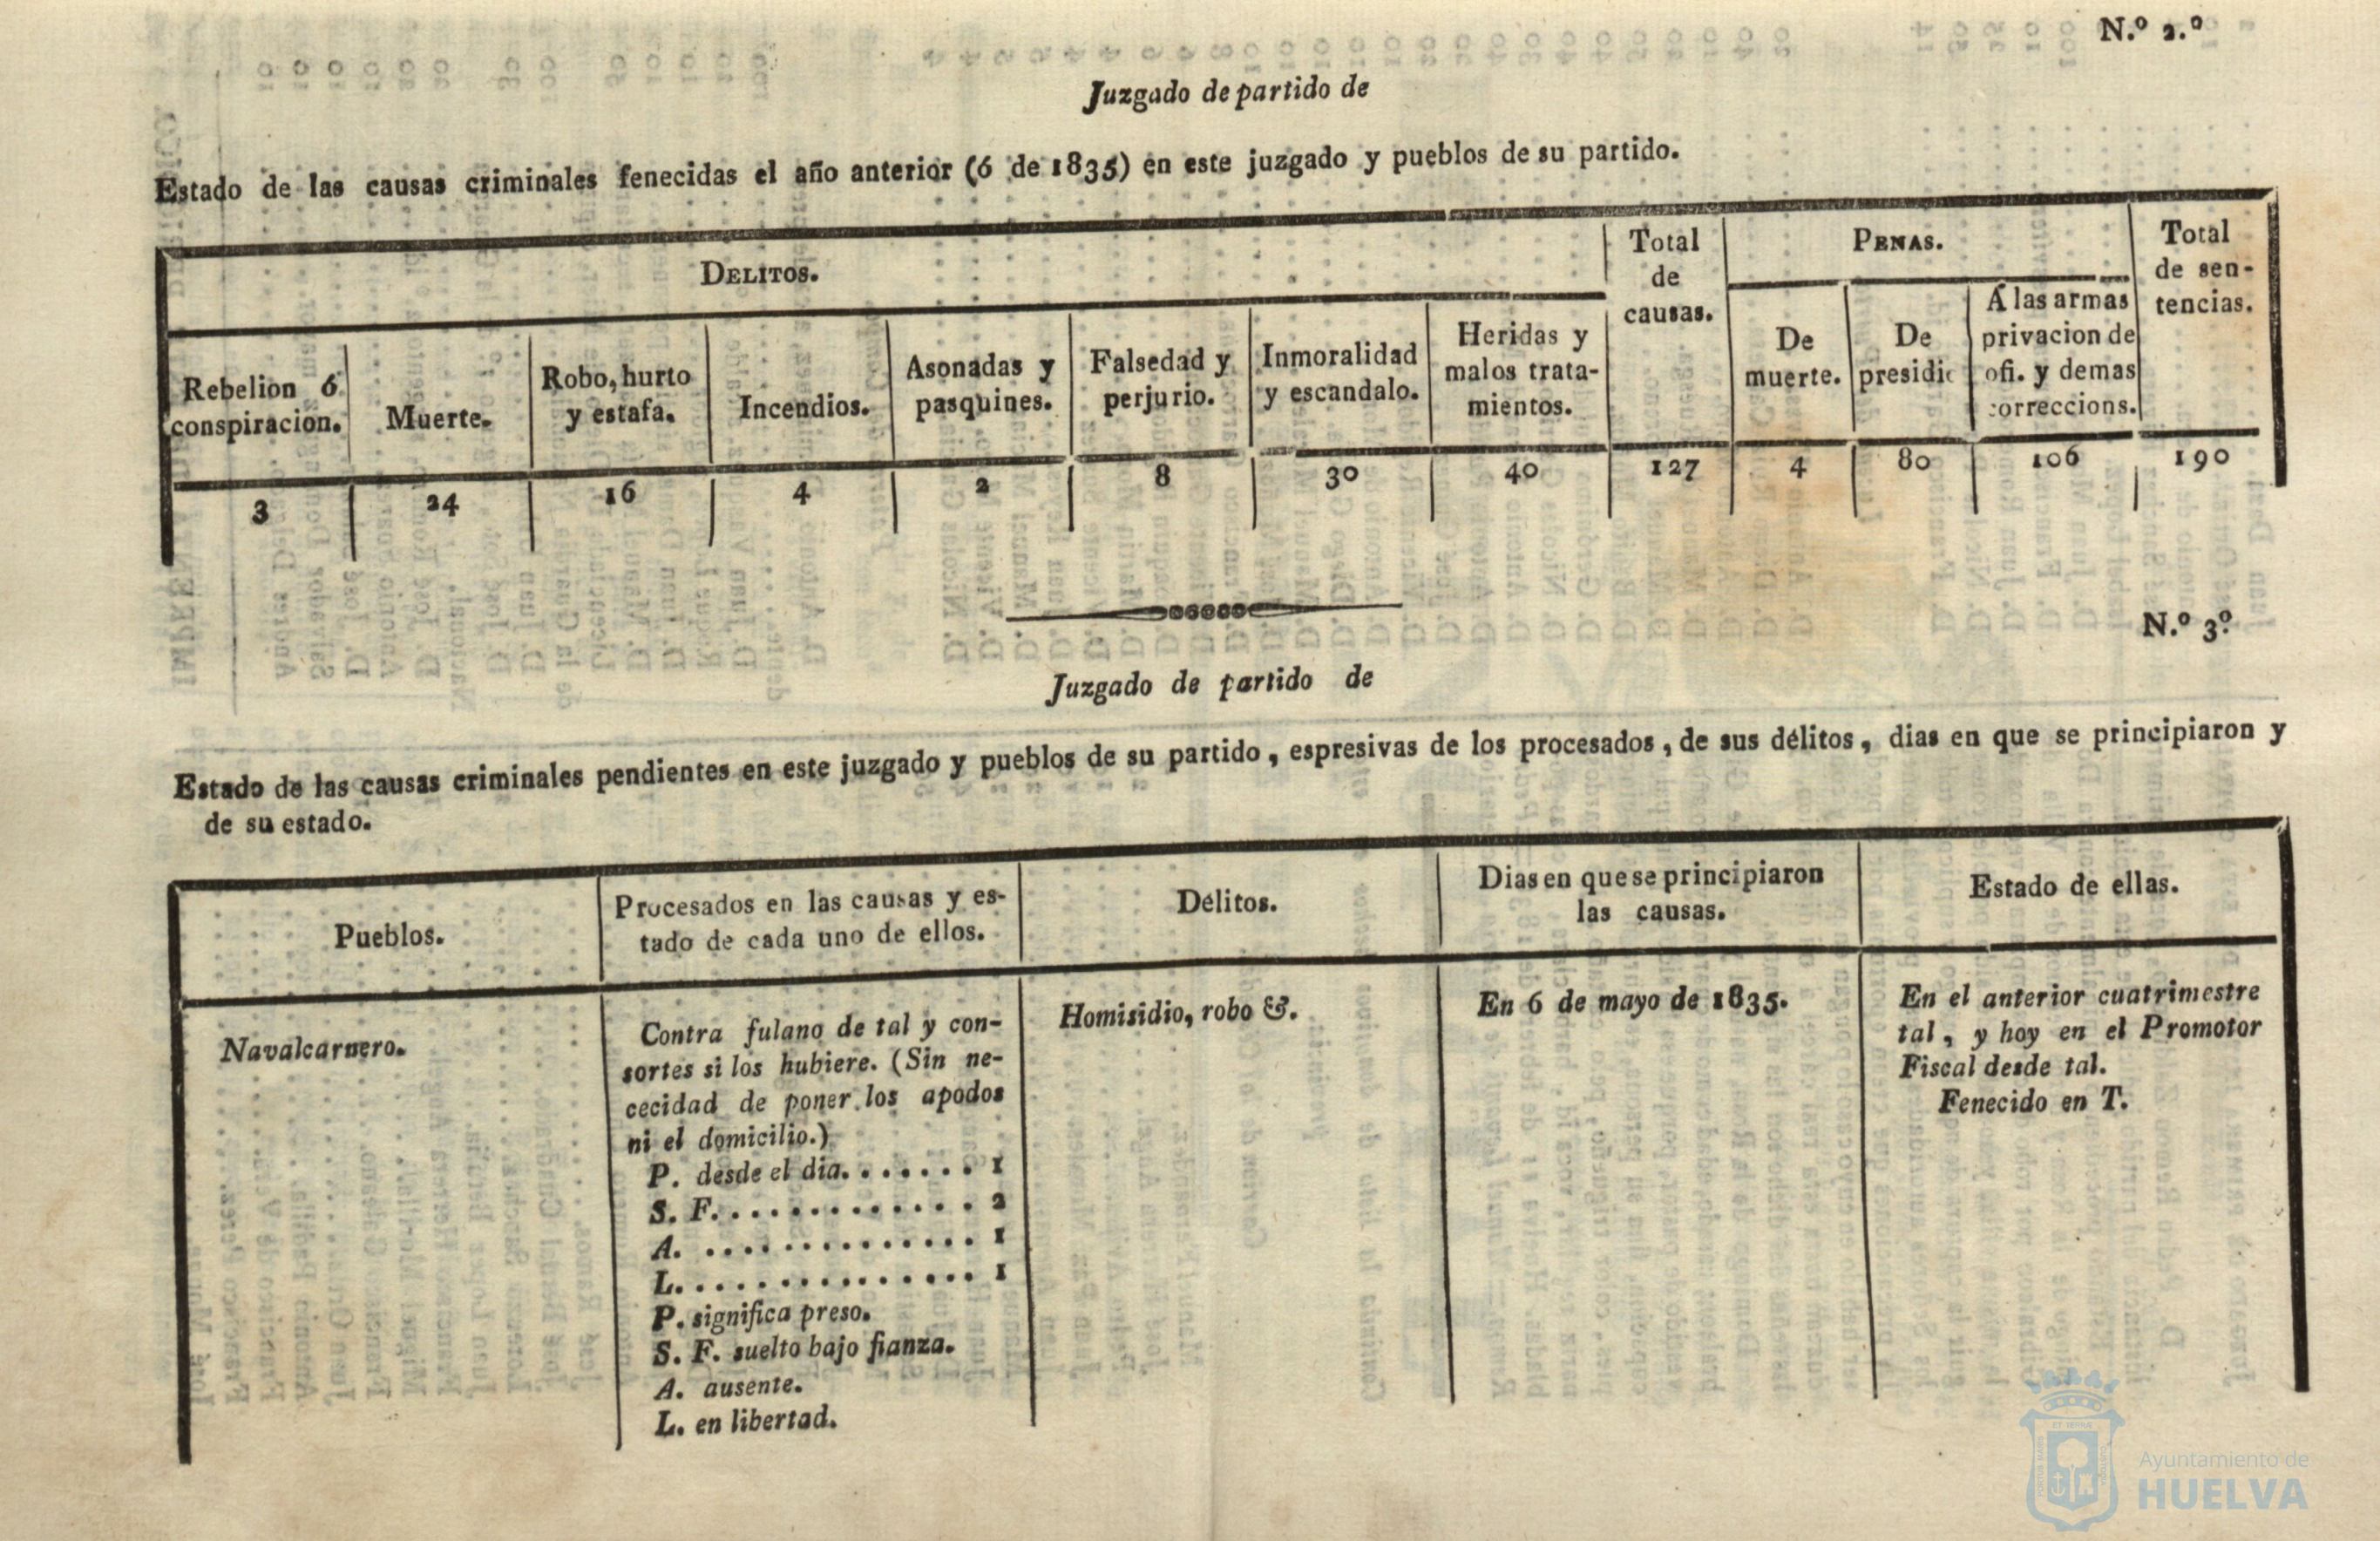 N.º 2.º
Juzgado de partido de
Estado de las causas criminales fenecidas el año anterior (ó de 1835) en este juzgado y pueblos de su partido.
DELITOS.
Total de causas.
PENAS.
Total de sentencias.
Rebelion ó
conspiracion.
Muerte.
Robo, hurto
y estafa.
Incendios.
Asonadas y
pasquines.
Falsedad y
perjurio.
Inmoralidad
y escandalo.
Heridas y
malos trata-
mientos.
De
muerte.
De
presidi
Á las armas
privacion de
ofi. y demas
correccions.
3 24 16 4 2 8 30 40 127 4 80 106 190
N.º 3º
Juzgado de partido de
Estado de las causas criminales pendientes en este juzgado y pueblos de su partido, espresivas de los procesados, de sus délitos, dias en que se principiaron y
de su estado.
Pueblos.
Procesados en las causas y es-
tado de cada uno de ellos.
Délitos.
Dias en que se principiaron
las causas.
Estado de ellas.
Navalcarnero.
Contra fulano de tal y con-
sortes si los hubiere. (Sin ne-
cecidad de poner los apodos
ni el domicilio.)
P. desde el dia. . . . . . . 1
S. F. . . . . . . . . . . . . 2
A. . . . . . . . . . . . . . . 1
L. . . . . . . . . . . . . . . 1
P. significa preso.
S. F. suelto bajo fianza.
A. ausente.
L. en libertad.
Homisidio, robo &.
En 6 de mayo de 1835.
En el anterior cuatrimestre
tal, y hoy en el Promotor
Fiscal desde tal.
Fenecido en T.
Ayuntamiento de
HUELVA